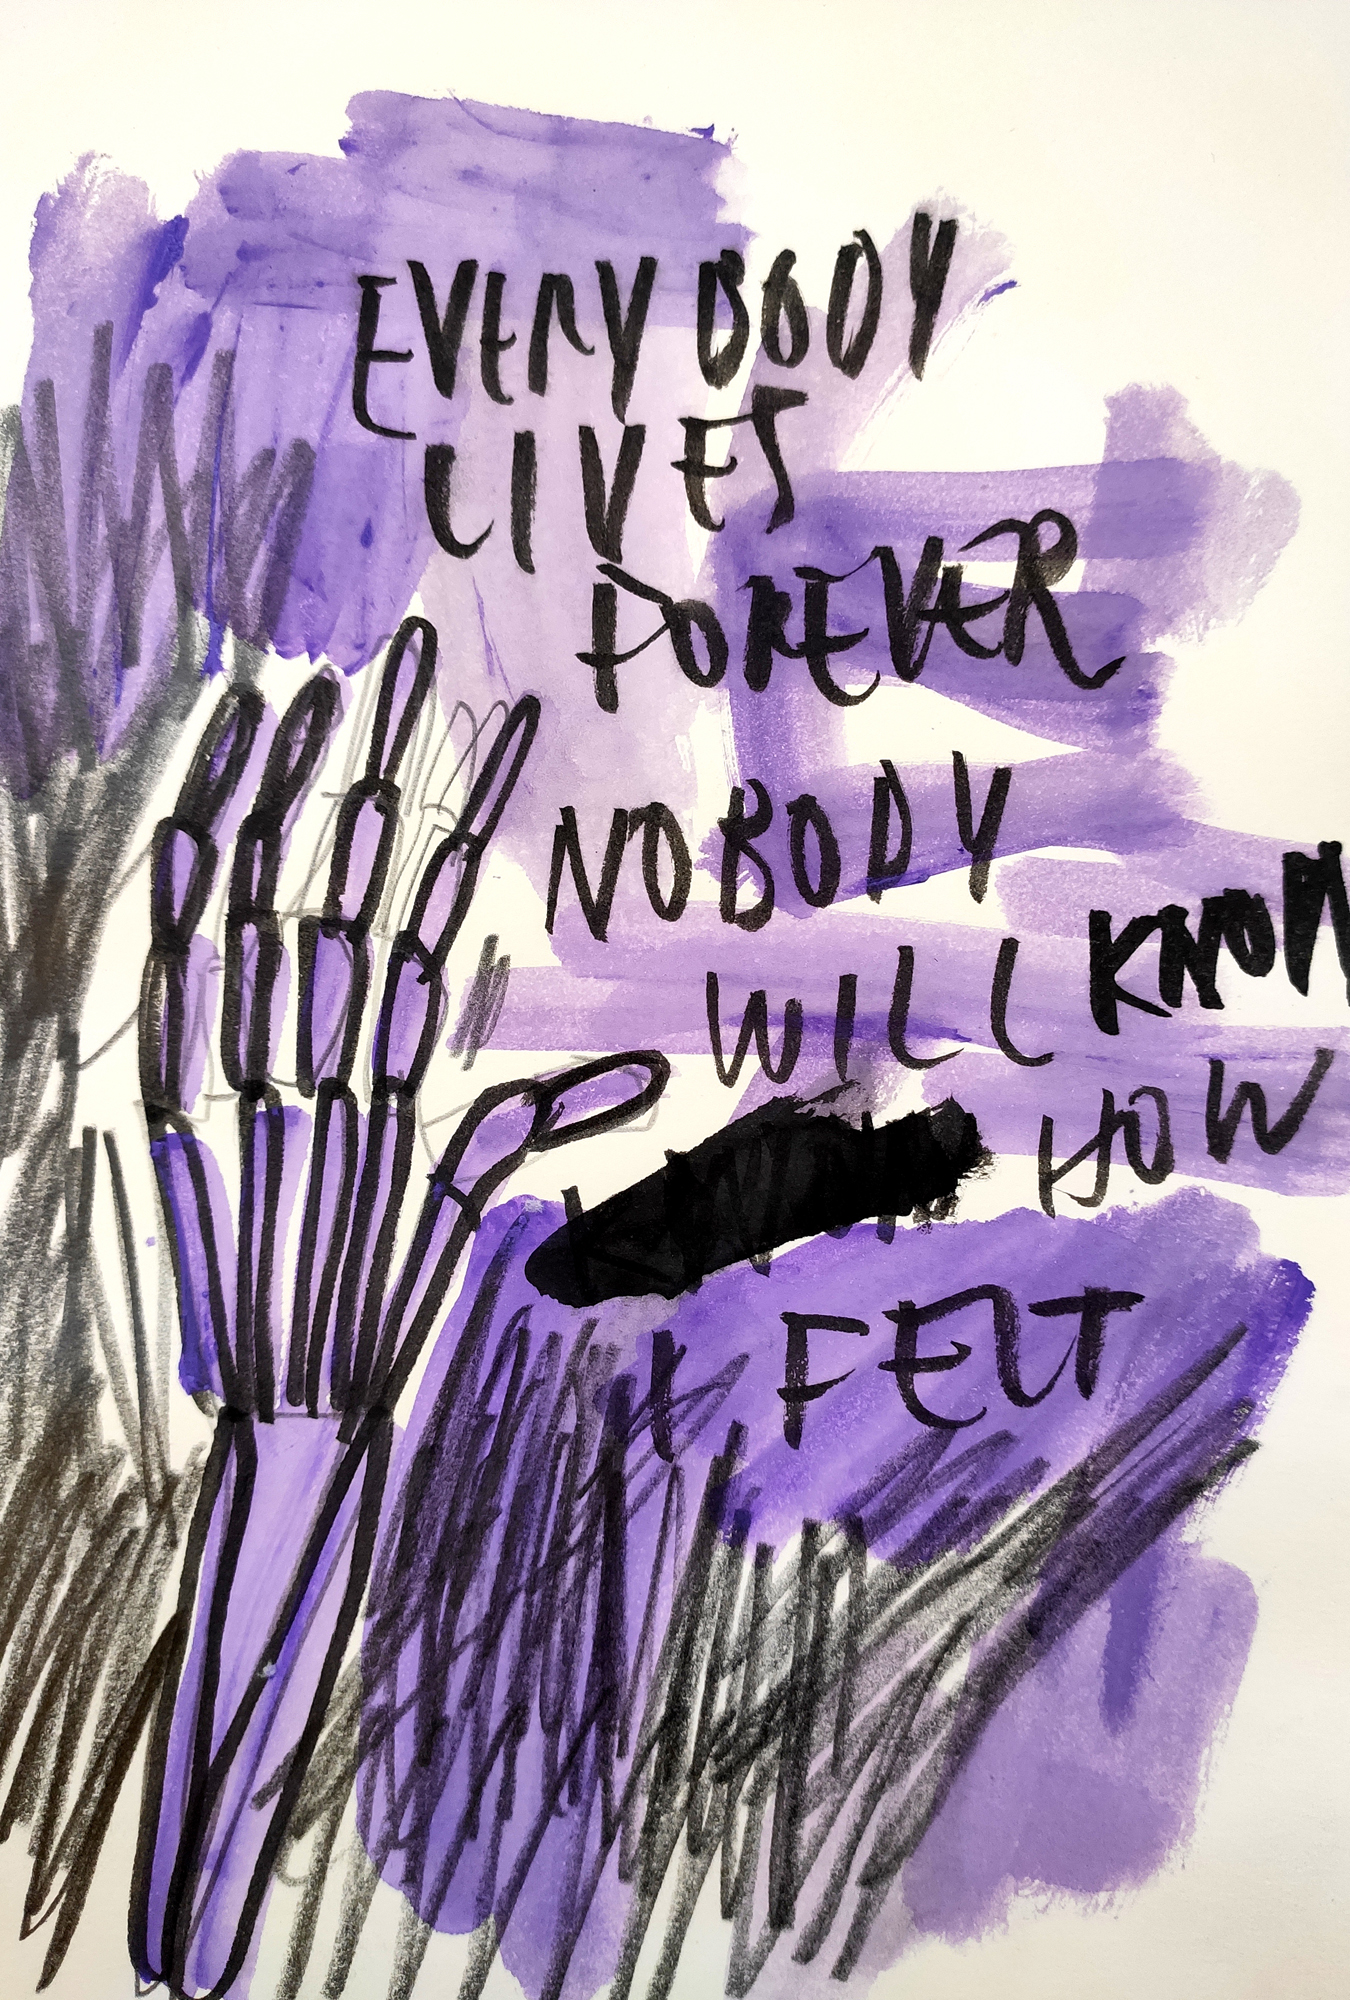 EVERYBODY
LIVES
FOREVER
NOBODY
WILL KNOW
HOW
I FELT